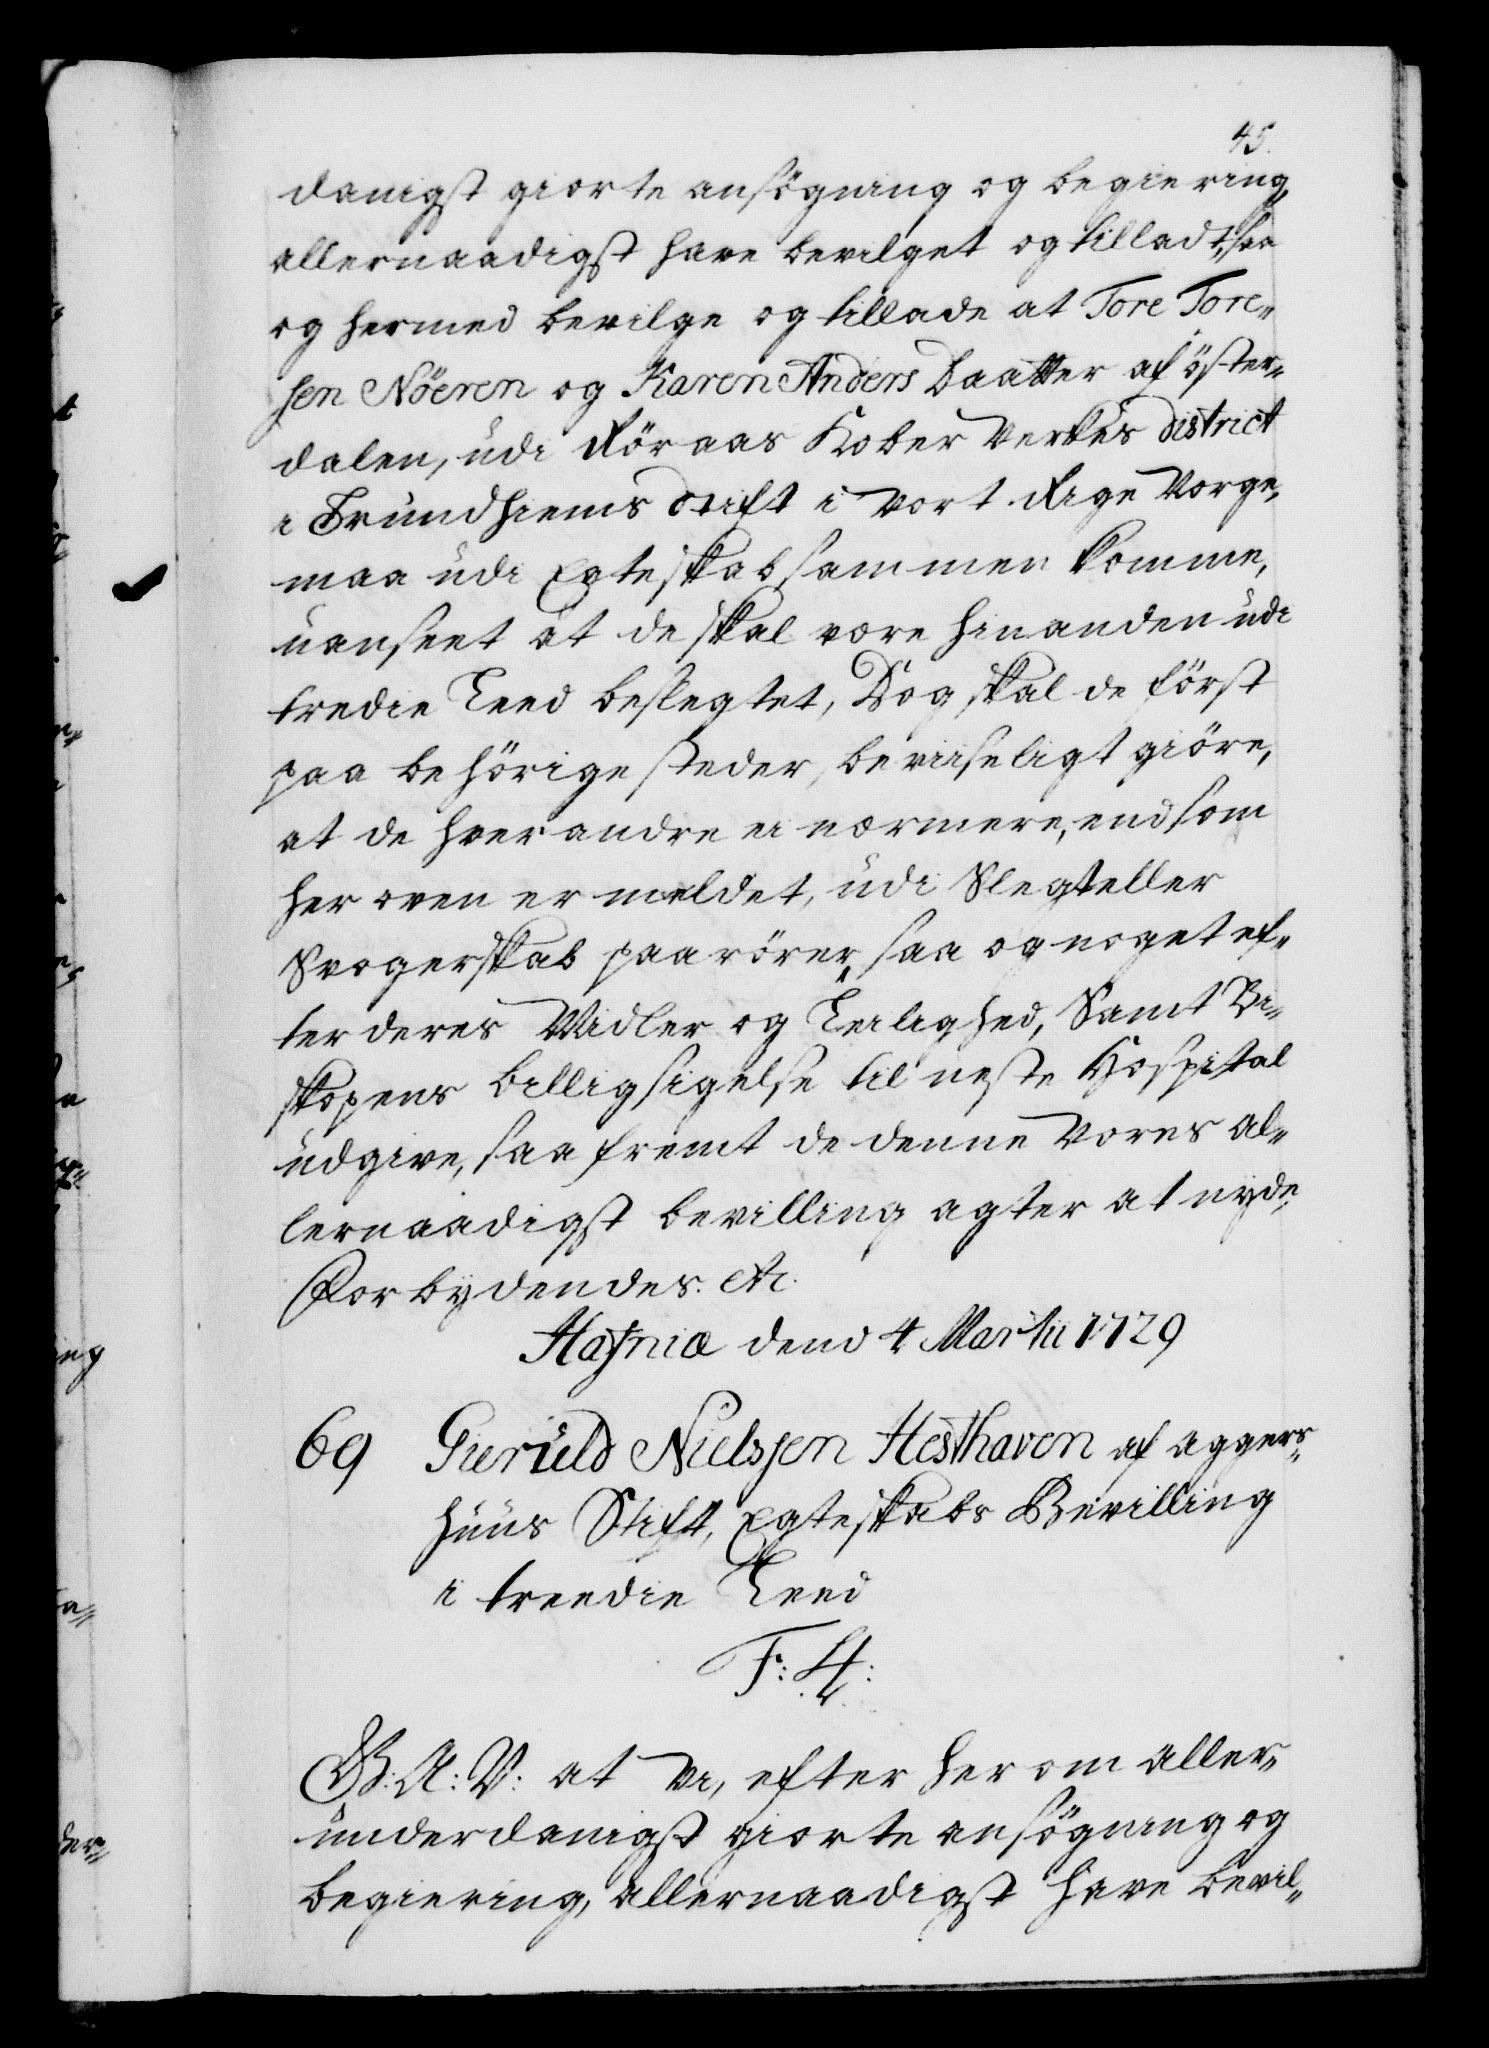 45.
danigst giorte ansögning og begiering,
allernaadigst have bevilget og tilladt, saa
og hermed bevilge og tillade at Tore Tore„
sen Nöeren og Karen Anders Daatter af öster„
dalen, udi Röraas Kober Verkes District
i Trundhiems Stift i Vort Rige Norge,
maa udi Egteskab sammen komme,
uanseet at de skal være hinanden udi
tredie Leed beslegtet, Dog skal de först
paa behörige steder, beviiseligt giöre,
at de hverandre ei nærmere, end som
her oven er meldet, udi Slegt eller
Svogerskab paarörer, saa og noget ef„
ter deres Midler og Leilighed, Samt Bi„
skopens billigsigelse til neste Hospital
udgive, saa fremt de denne Vores al„
lernaadigst bevilling agter at nyde,
Forbydendes. etc.
Hafniæ dend 4 Martii 1729
69 Gieruld Nielssen Hesthaven af Aggers„
huus Stift, Egteskabs Bevilling
i treedie Leed
F: 4:
G: A: V: at Vi, efter her om aller„
underdanigst giorte ansögning og
begiering, allernaadigst have bevil„